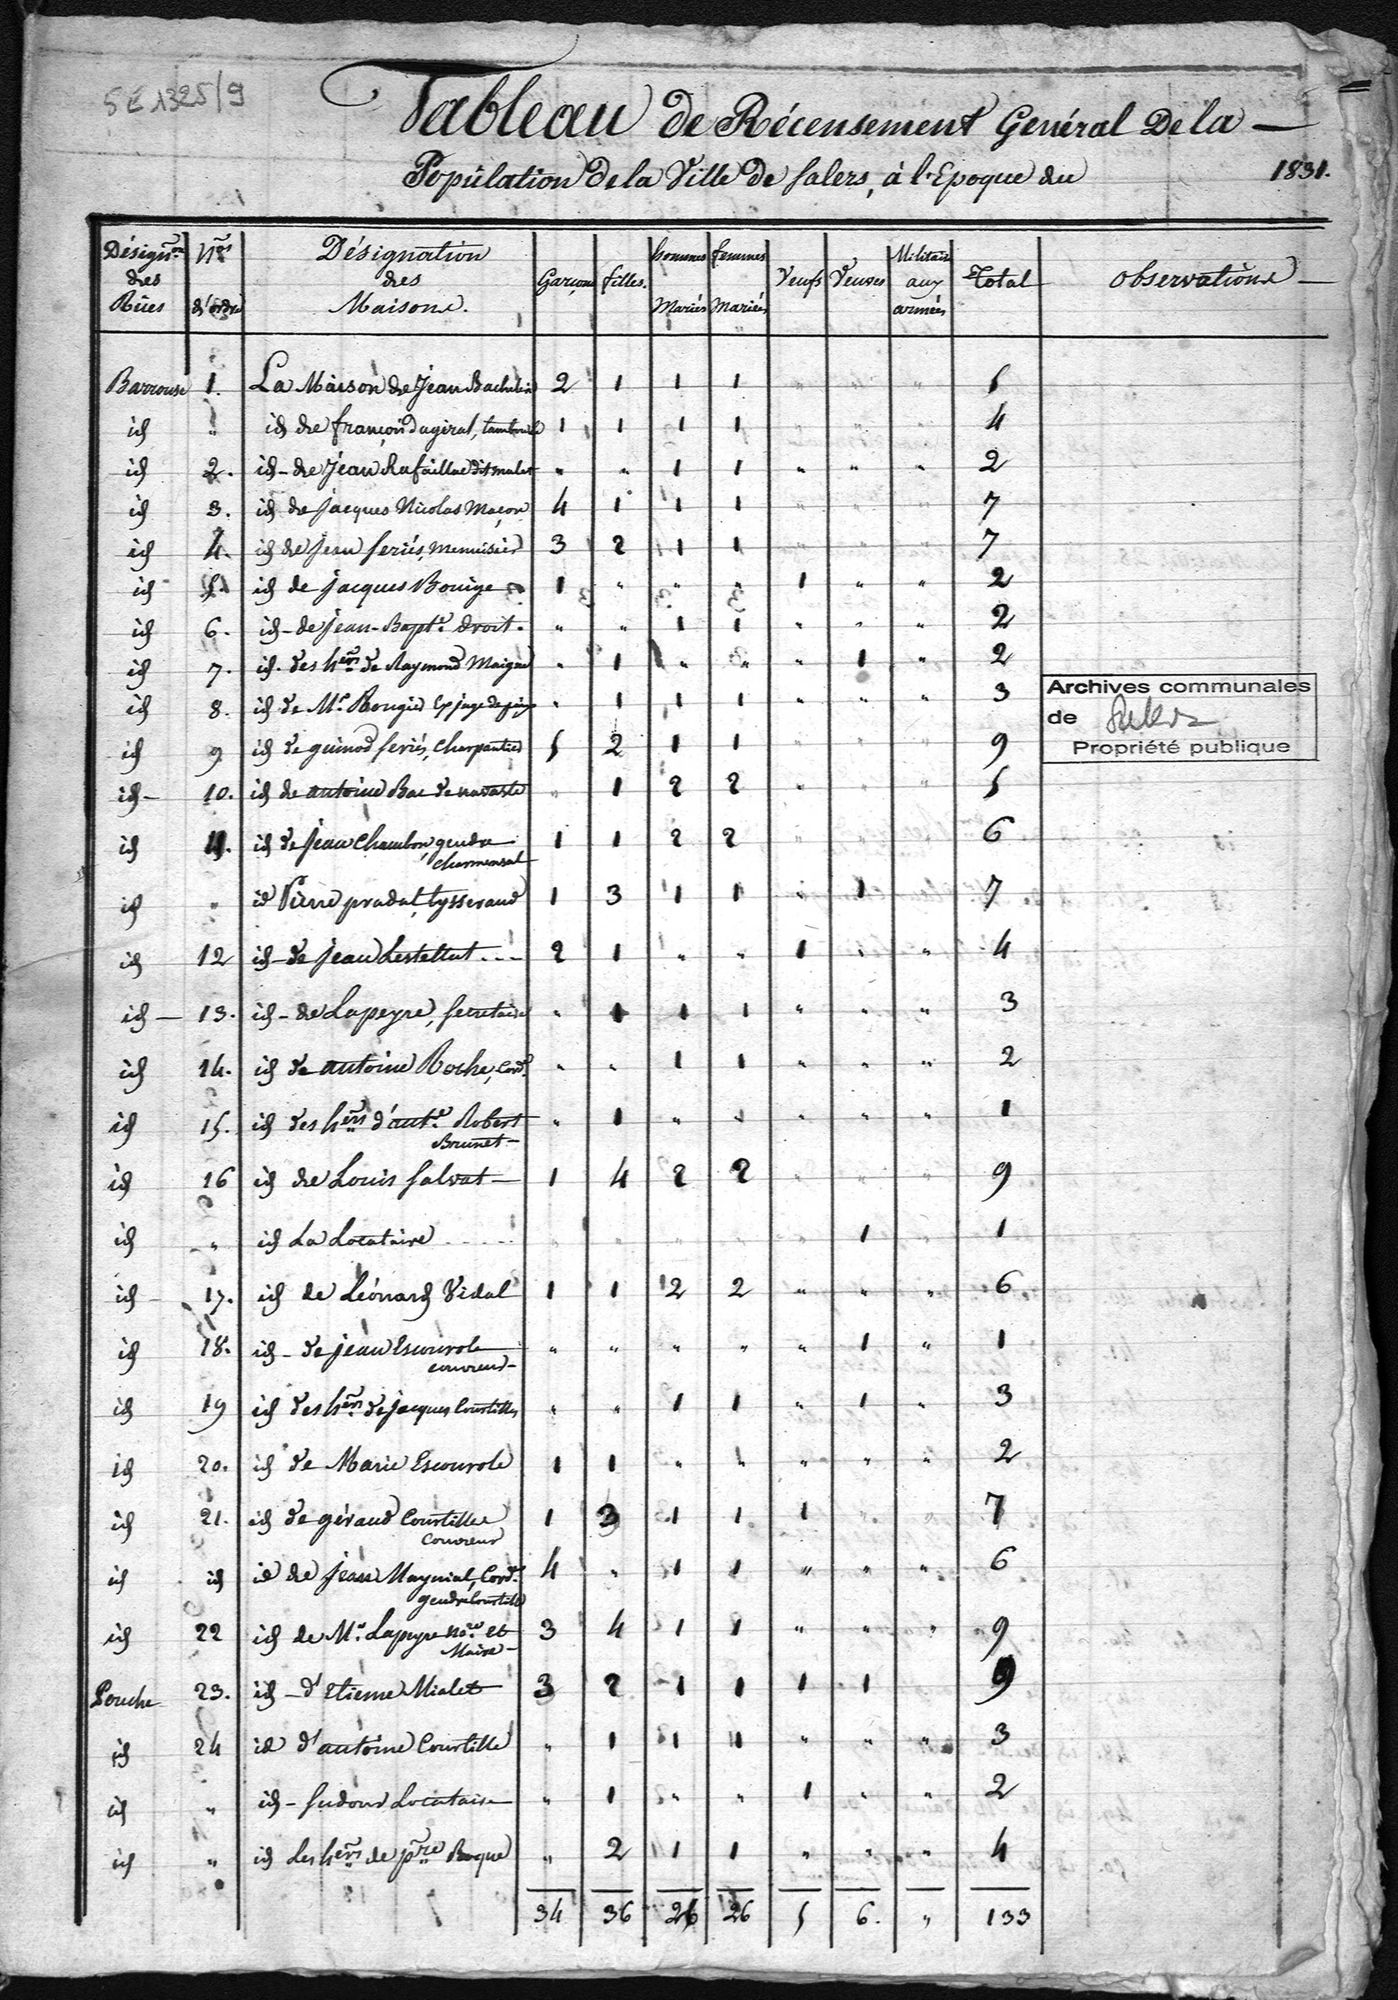 5 E 1325/9
Tableau de Récensement Général De la —
Population de la Ville de Salers, à l'Epoque du 1831.
Désign.on des Rües | N.os d'ordre | Désignation des Maisons. | Garçons | filles. | hommes Mariés | femmes Mariées | Veufs | Veuves | Militaires aux armées | Total | observations
Barrouse 1. La Maison de Jean Bachelerie 2 1 1 1 " " " 5
id " id de françois dugirat, tambour 1 1 1 1 4
id 2. id - de Jean Rafaillac dit mulet " " 1 1 " " " 2
id 3. id de Jacques Nicolas Maçon 4 1 1 1 " " " 7
id 4. id de Jean feriés, Menuisier 3 2 1 1 " " " 7
id 5. id de jacques Bouige 1 " " " 1 " " 2
id 6. id - de jean-Bapt.e droit. " " 1 1 " " " 2
id 7. id. des h.ers de Raymond Maigne " 1 " " " 1 " 2
id 8. id de M.r Rougier Ex juge de paix " 1 1 1 " " " 3
id 9 id de guinod feriés, Charpentier 5 2 1 1 " " " 9
id - 10. id de antoine Bac de navaste " 1 2 2 " " " 5
id 11. id de Jean Chambon, gendre 1 1 2 2 " 6
Charmensat
id " id Pierre pradat, tysserand 1 3 1 1 " 1 7
id 12 id - de jean Lestellut 2 1 " " 1 " " 4
id — 13. id - de Lapeyre, secretaire " 1 1 1 " " " 3
id 14. id de antoine Roche, Cord.r " " 1 1 " " " 2
id 15. id des h.ers d'ant.e Robert " 1 " " " " " 1
Brunet -
id 16 id de Louis Salvat - 1 4 2 2 " " " 9
id " id La Locataire " " " " " 1 1
id - 17. id de Léonard Vidal 1 1 2 2 " " " 6
id 18. id - de jean Escurole " " " " " 1 " 1
couvreur -
id 19 id des h.ers de jacques Courtilles " " 1 1 " 1 " 3
id 20. id de Marie Escourole 1 1 " " " " " 2
id 21. id de géraud Courtille 1 3 1 1 1 " " 7
Couvreur
id id id de jean Maynial, Cord.r 4 " 1 1 " " " 6
gendre Courtille
id 22 id de M.r Lapeyre No.re et 3 4 1 1 " " " 9
Maire -
23. id - d'Etienne Mialet 3 2 1 1 1 1 9
id 24 id d'antoine Courtille " 1 1 1 " " " 3
id " id - Sudour Locataire " 1 " " 1 " " 2
id " id Les h.ers de p.rre Roque " 2 1 1 " " " 4
34 36 26 26 5 6. " 133
Archives communales
de Salers
Propriété publique